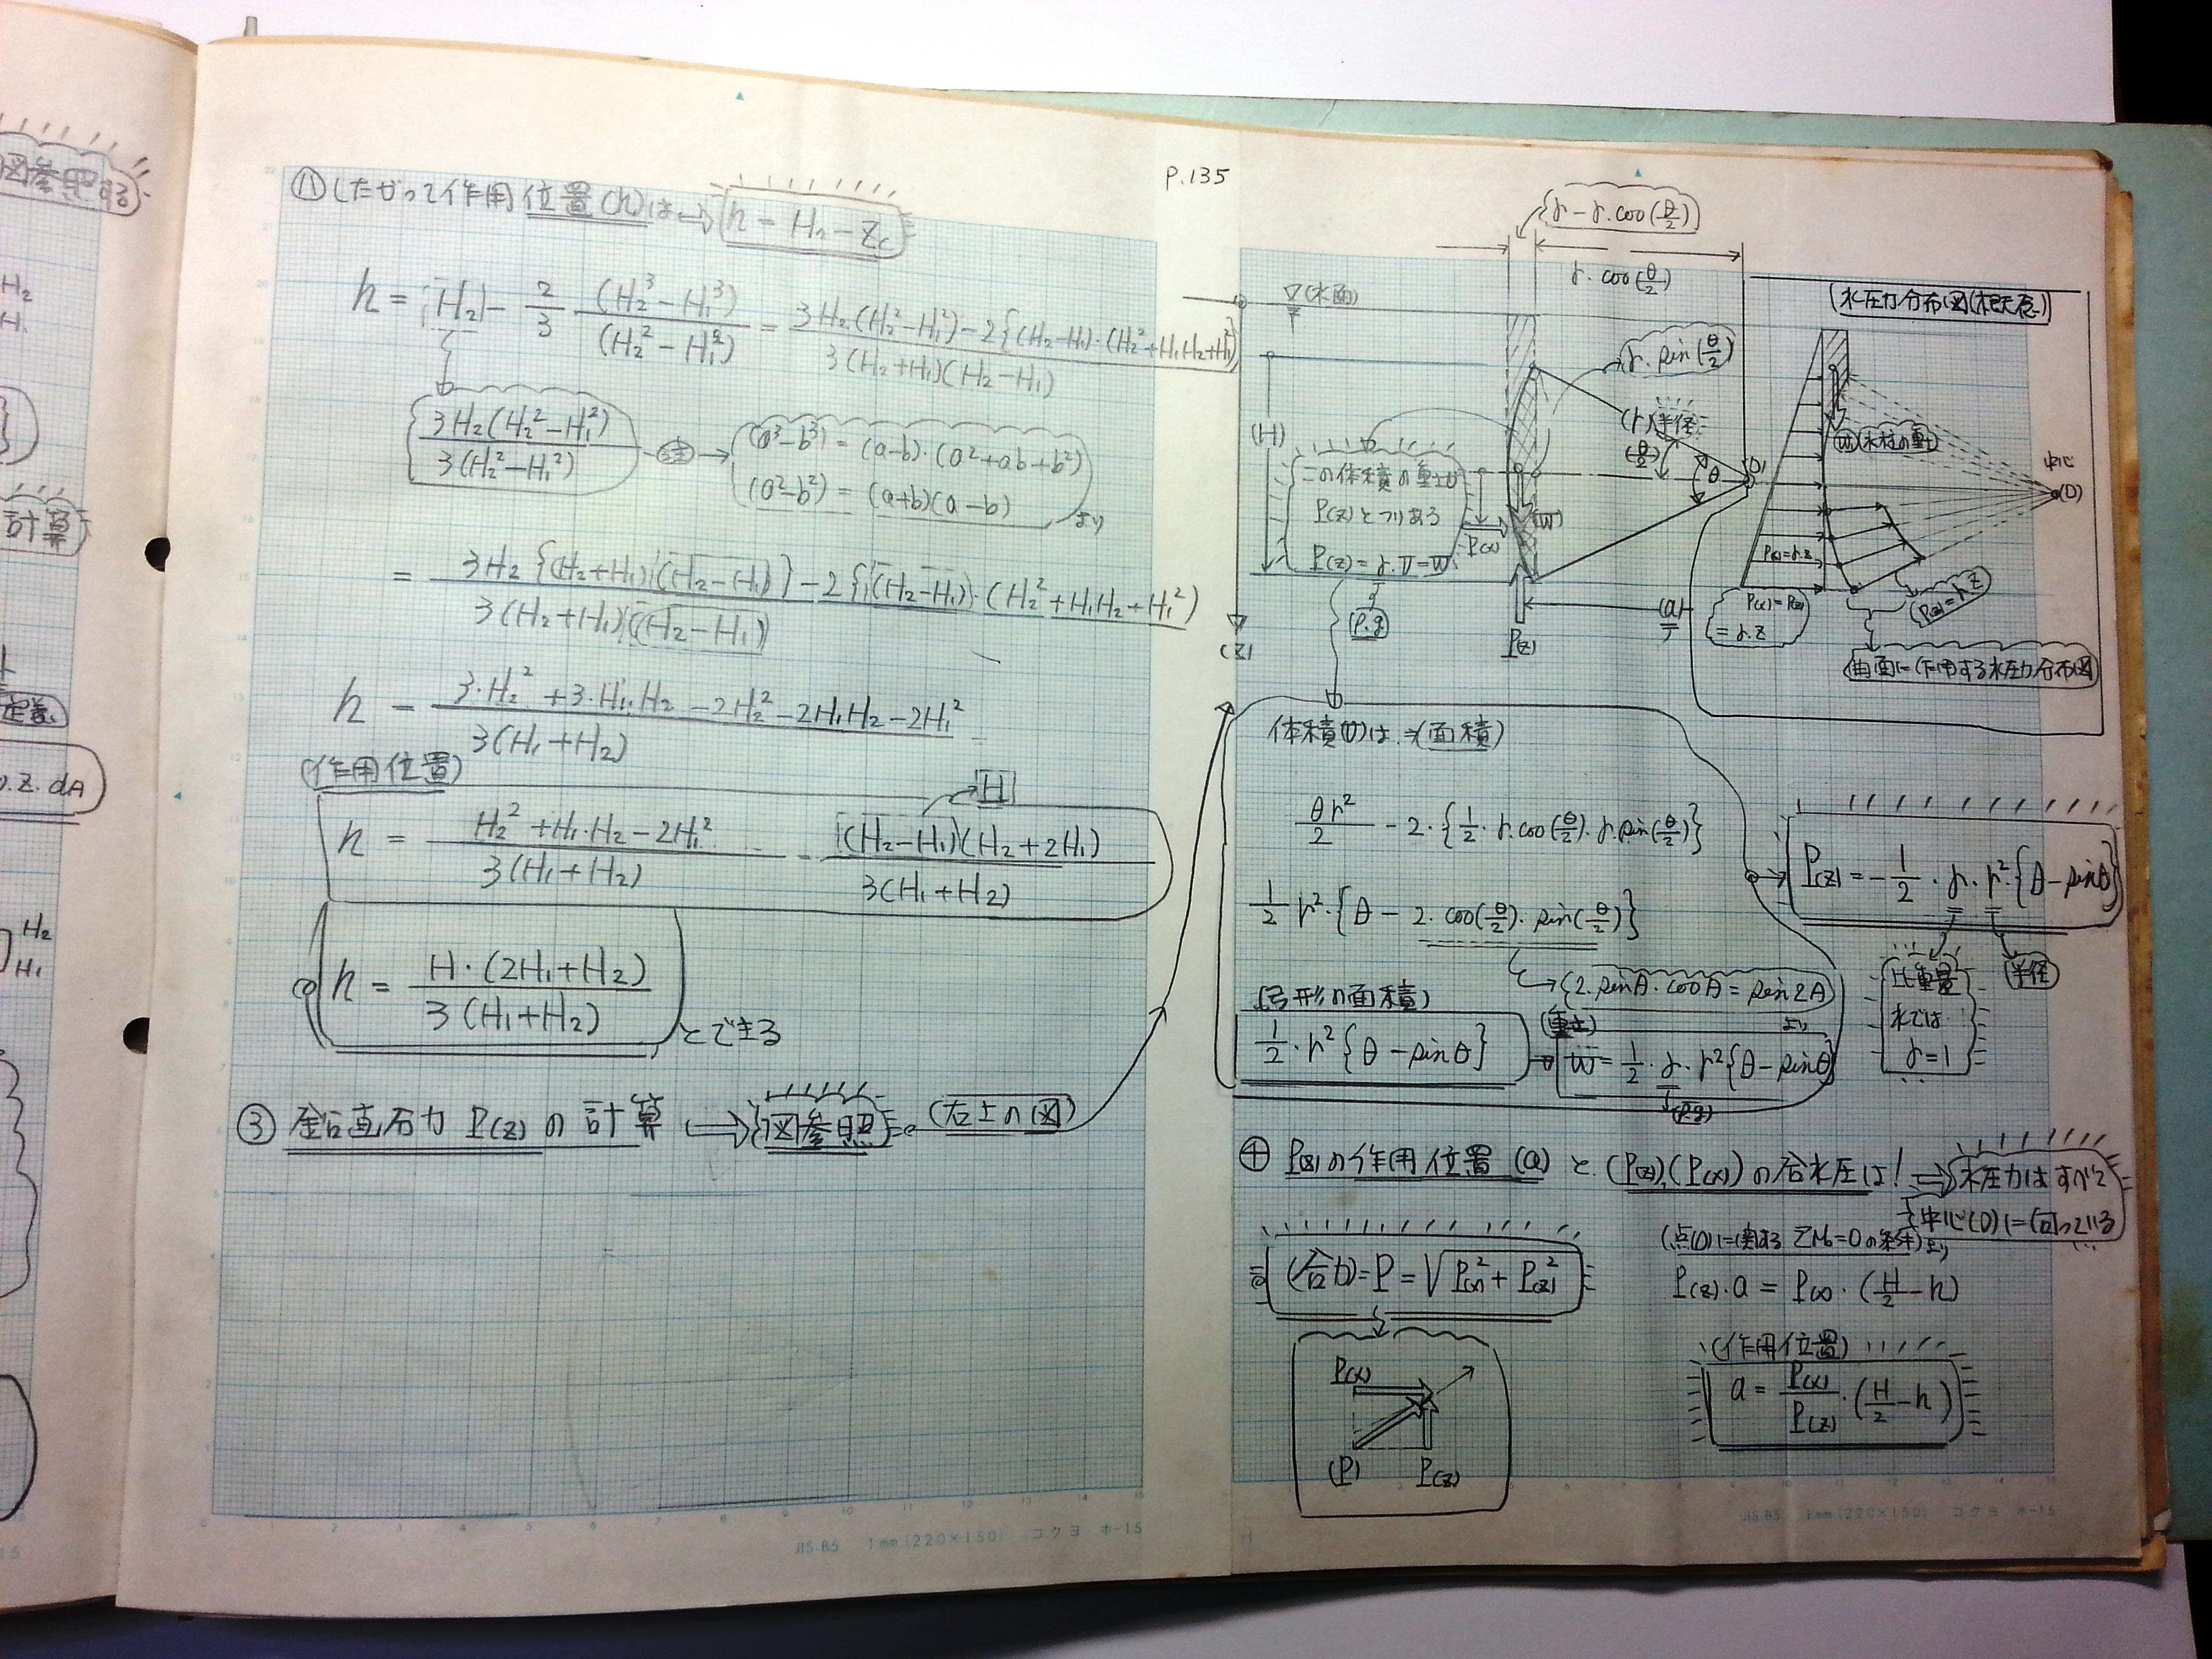 P.135
⑪ したがって作用位置(h)は → h = H₂ − Zc
h = H₂ − 2/3 (H₂³ − H₁³)/(H₂² − H₁²) = 3H₂(H₂²−H₁²)−2{(H₂−H₁)·(H₂²+H₁H₂+H₁²)}/3(H₂+H₁)(H₂−H₁)
3H₂(H₂²−H₁²)/3(H₂²−H₁²) 注 → (a³−b³) = (a−b)·(a²+ab+b²)
(a²−b²) = (a+b)(a−b) より
= 3H₂{(H₂+H₁)(H₂−H₁)}−2{(H₂−H₁)·(H₂²+H₁H₂+H₁²)/3(H₂+H₁)(H₂−H₁)
h = 3·H₂²+3·H₁·H₂−2H₂²−2H₁H₂−2H₁²/3(H₁+H₂)
(作用位置)
H
h = H₂²+H₁·H₂−2H₁²/3(H₁+H₂) = (H₂−H₁)(H₂+2H₁)/3(H₁+H₂)
h = H·(2H₁+H₂)/3(H₁+H₂) とできる
③ 鉛直石力 P(z)の計算 ⇒ 図参照 (右上の図)
r−r·cos(θ/2)
r·cos(θ/2)
▽(水面)
r·sin(θ/2)
(r)半径
(θ/2)
θ
(H)
この体積の重量が
P(z)とつりあう
P(z)=γ·V=W
(ρ.g)
P(x)
(W)
P(z)
(a)
(Z)
(水圧力分布図(概念))
(W)(水柱の重量)
中心
(O)
P(x)=γ.z
P(x)=P(z)
=γ.z
P(z)=γ.z
曲面に作用する水圧力分布図
体積(V)は ⇒(面積)
θr²/2 − 2·{1/2·r·cos(θ/2)·r·sin(θ/2)}
1/2 r²·{θ − 2·cos(θ/2)·sin(θ/2)}
{2·sinA·cosA = sin2A} より
(弓形の面積)
1/2·r²{θ−sinθ}
(重量)
W = 1/2·γ·r²{θ−sinθ}
(ρ.g)
P(z) = 1/2·γ·r²·{θ−sinθ}
比重量
水では
γ=1
(半径)
④ P(z)の作用位置(a)と(P(z),(P(x))の合水圧は! ⇒ 水圧力はすべて
中心(O)に向っている
(合力)=P=√P(x)²+P(z)²
(点(O)に関するΣM₀=0の条件)より
P(z)·a = P(x)·(H/2−h)
(作用位置)
a = P(x)/P(z)·(H/2−h)
P(x)
(P)
P(z)
JIS.B5 1mm(220×150) コクヨ ホ-15
JIS.B5 1mm(220×150) コクヨ ホ-15
図参照する
H₂
H₁
計算
定義
.z.dA
H₂
H₁